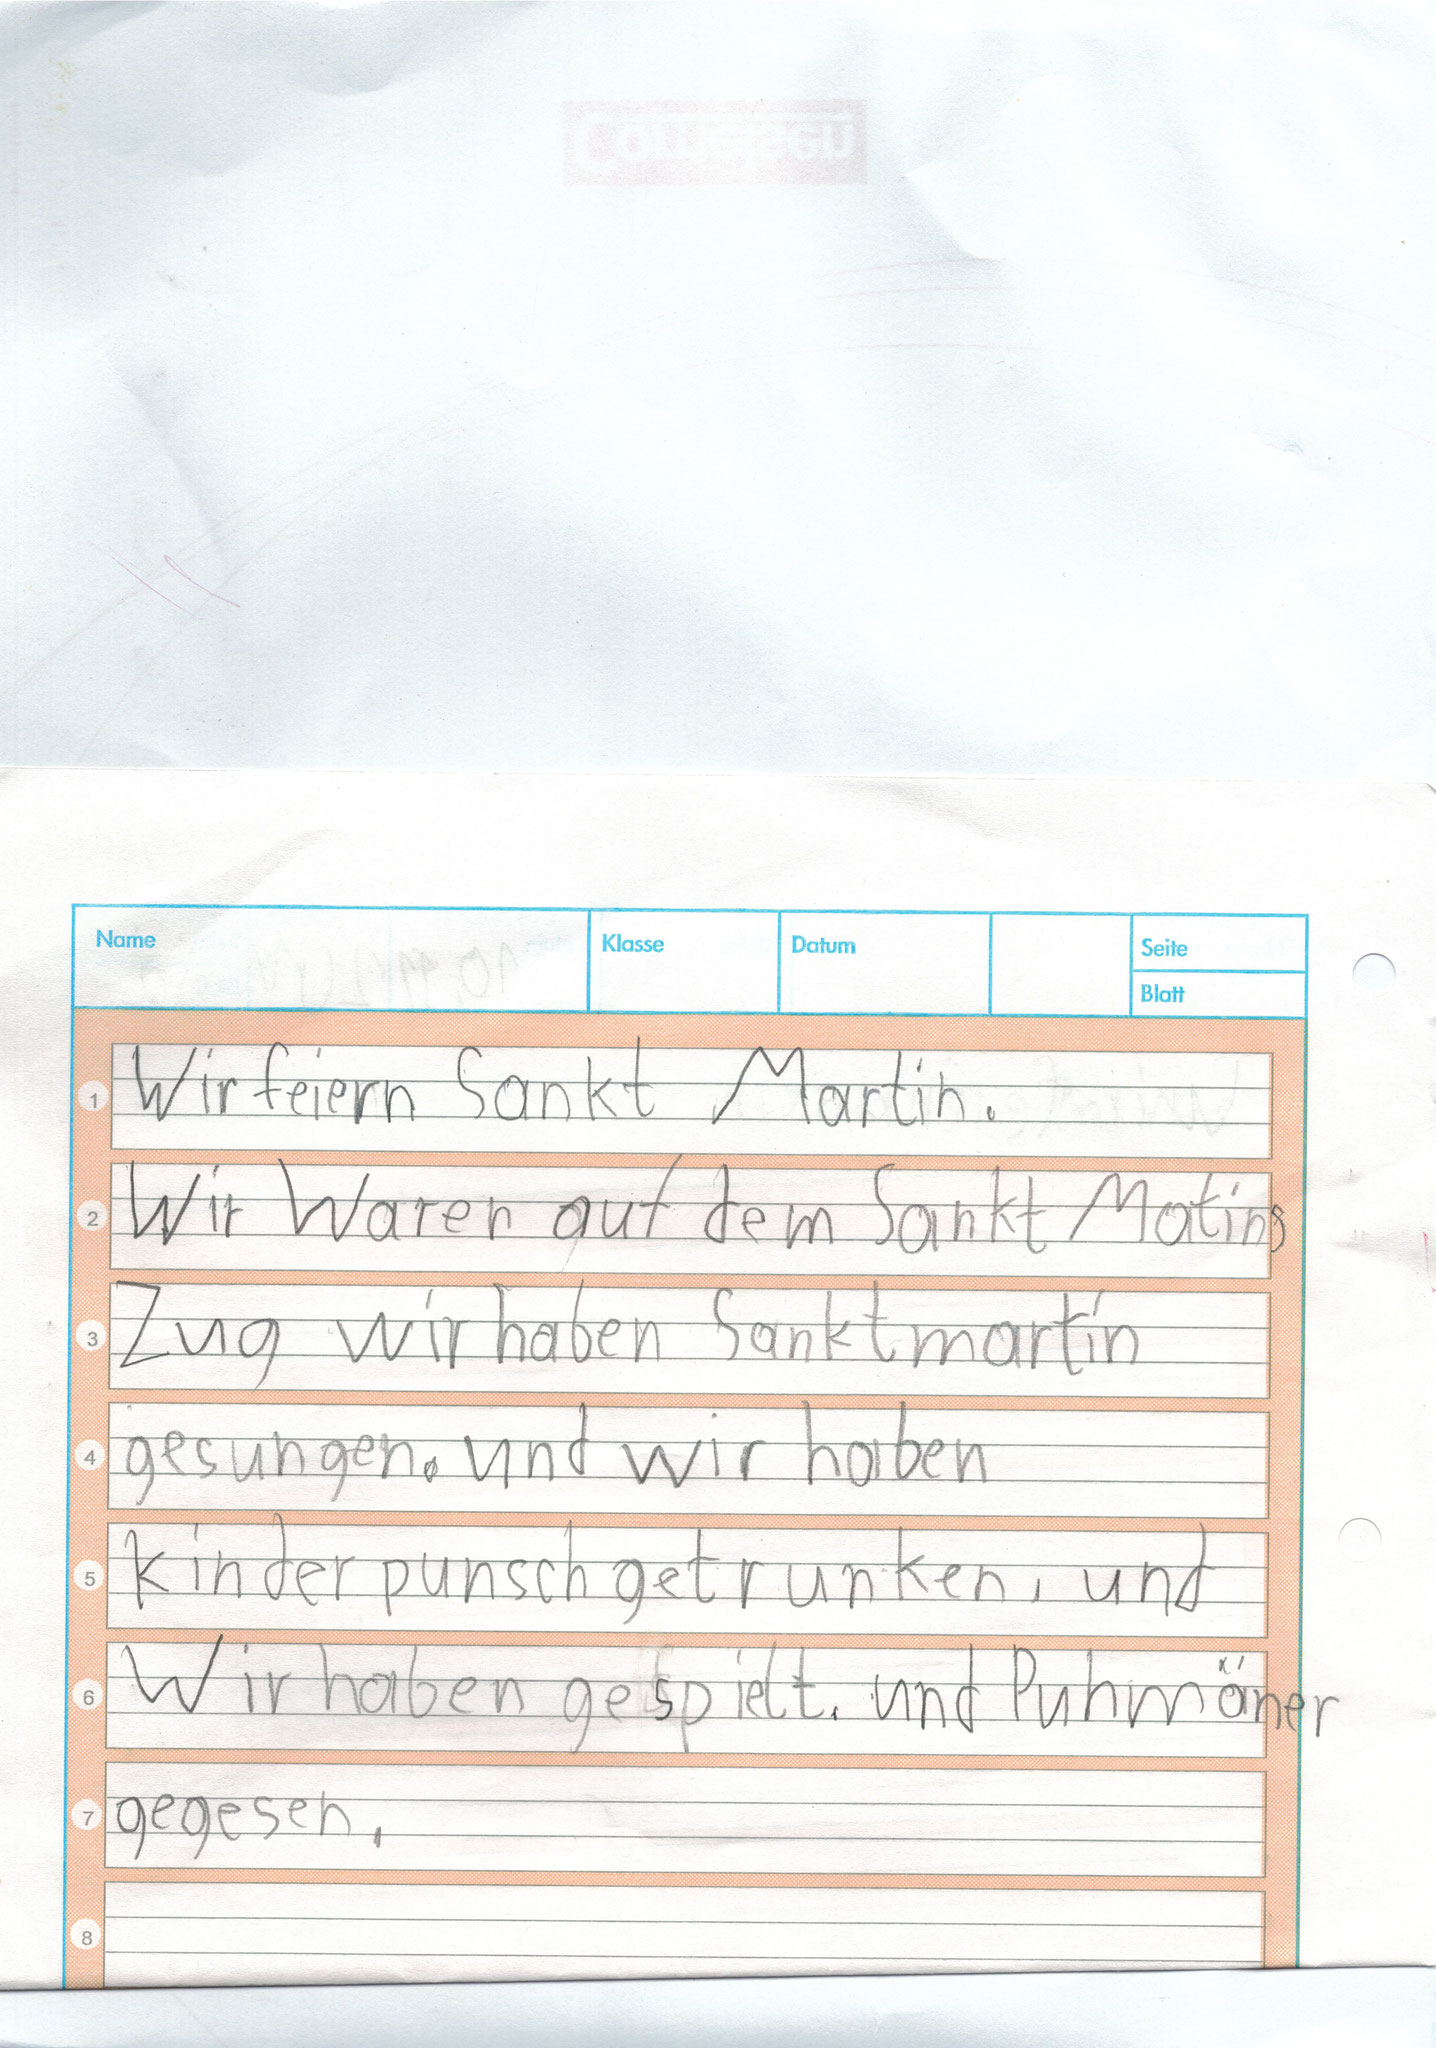 Name Klasse Datum Seite
Blatt
1 Wir feiern Sankt Martin.
2 Wir Waren auf dem Sankt Matins
3 Zug wir haben Sanktmartin
4 gesungen. und wir haben
5 kinderpunsch getrunken, und
6 Wir haben gespielt. und Puhmäner
7 gegesen.
8